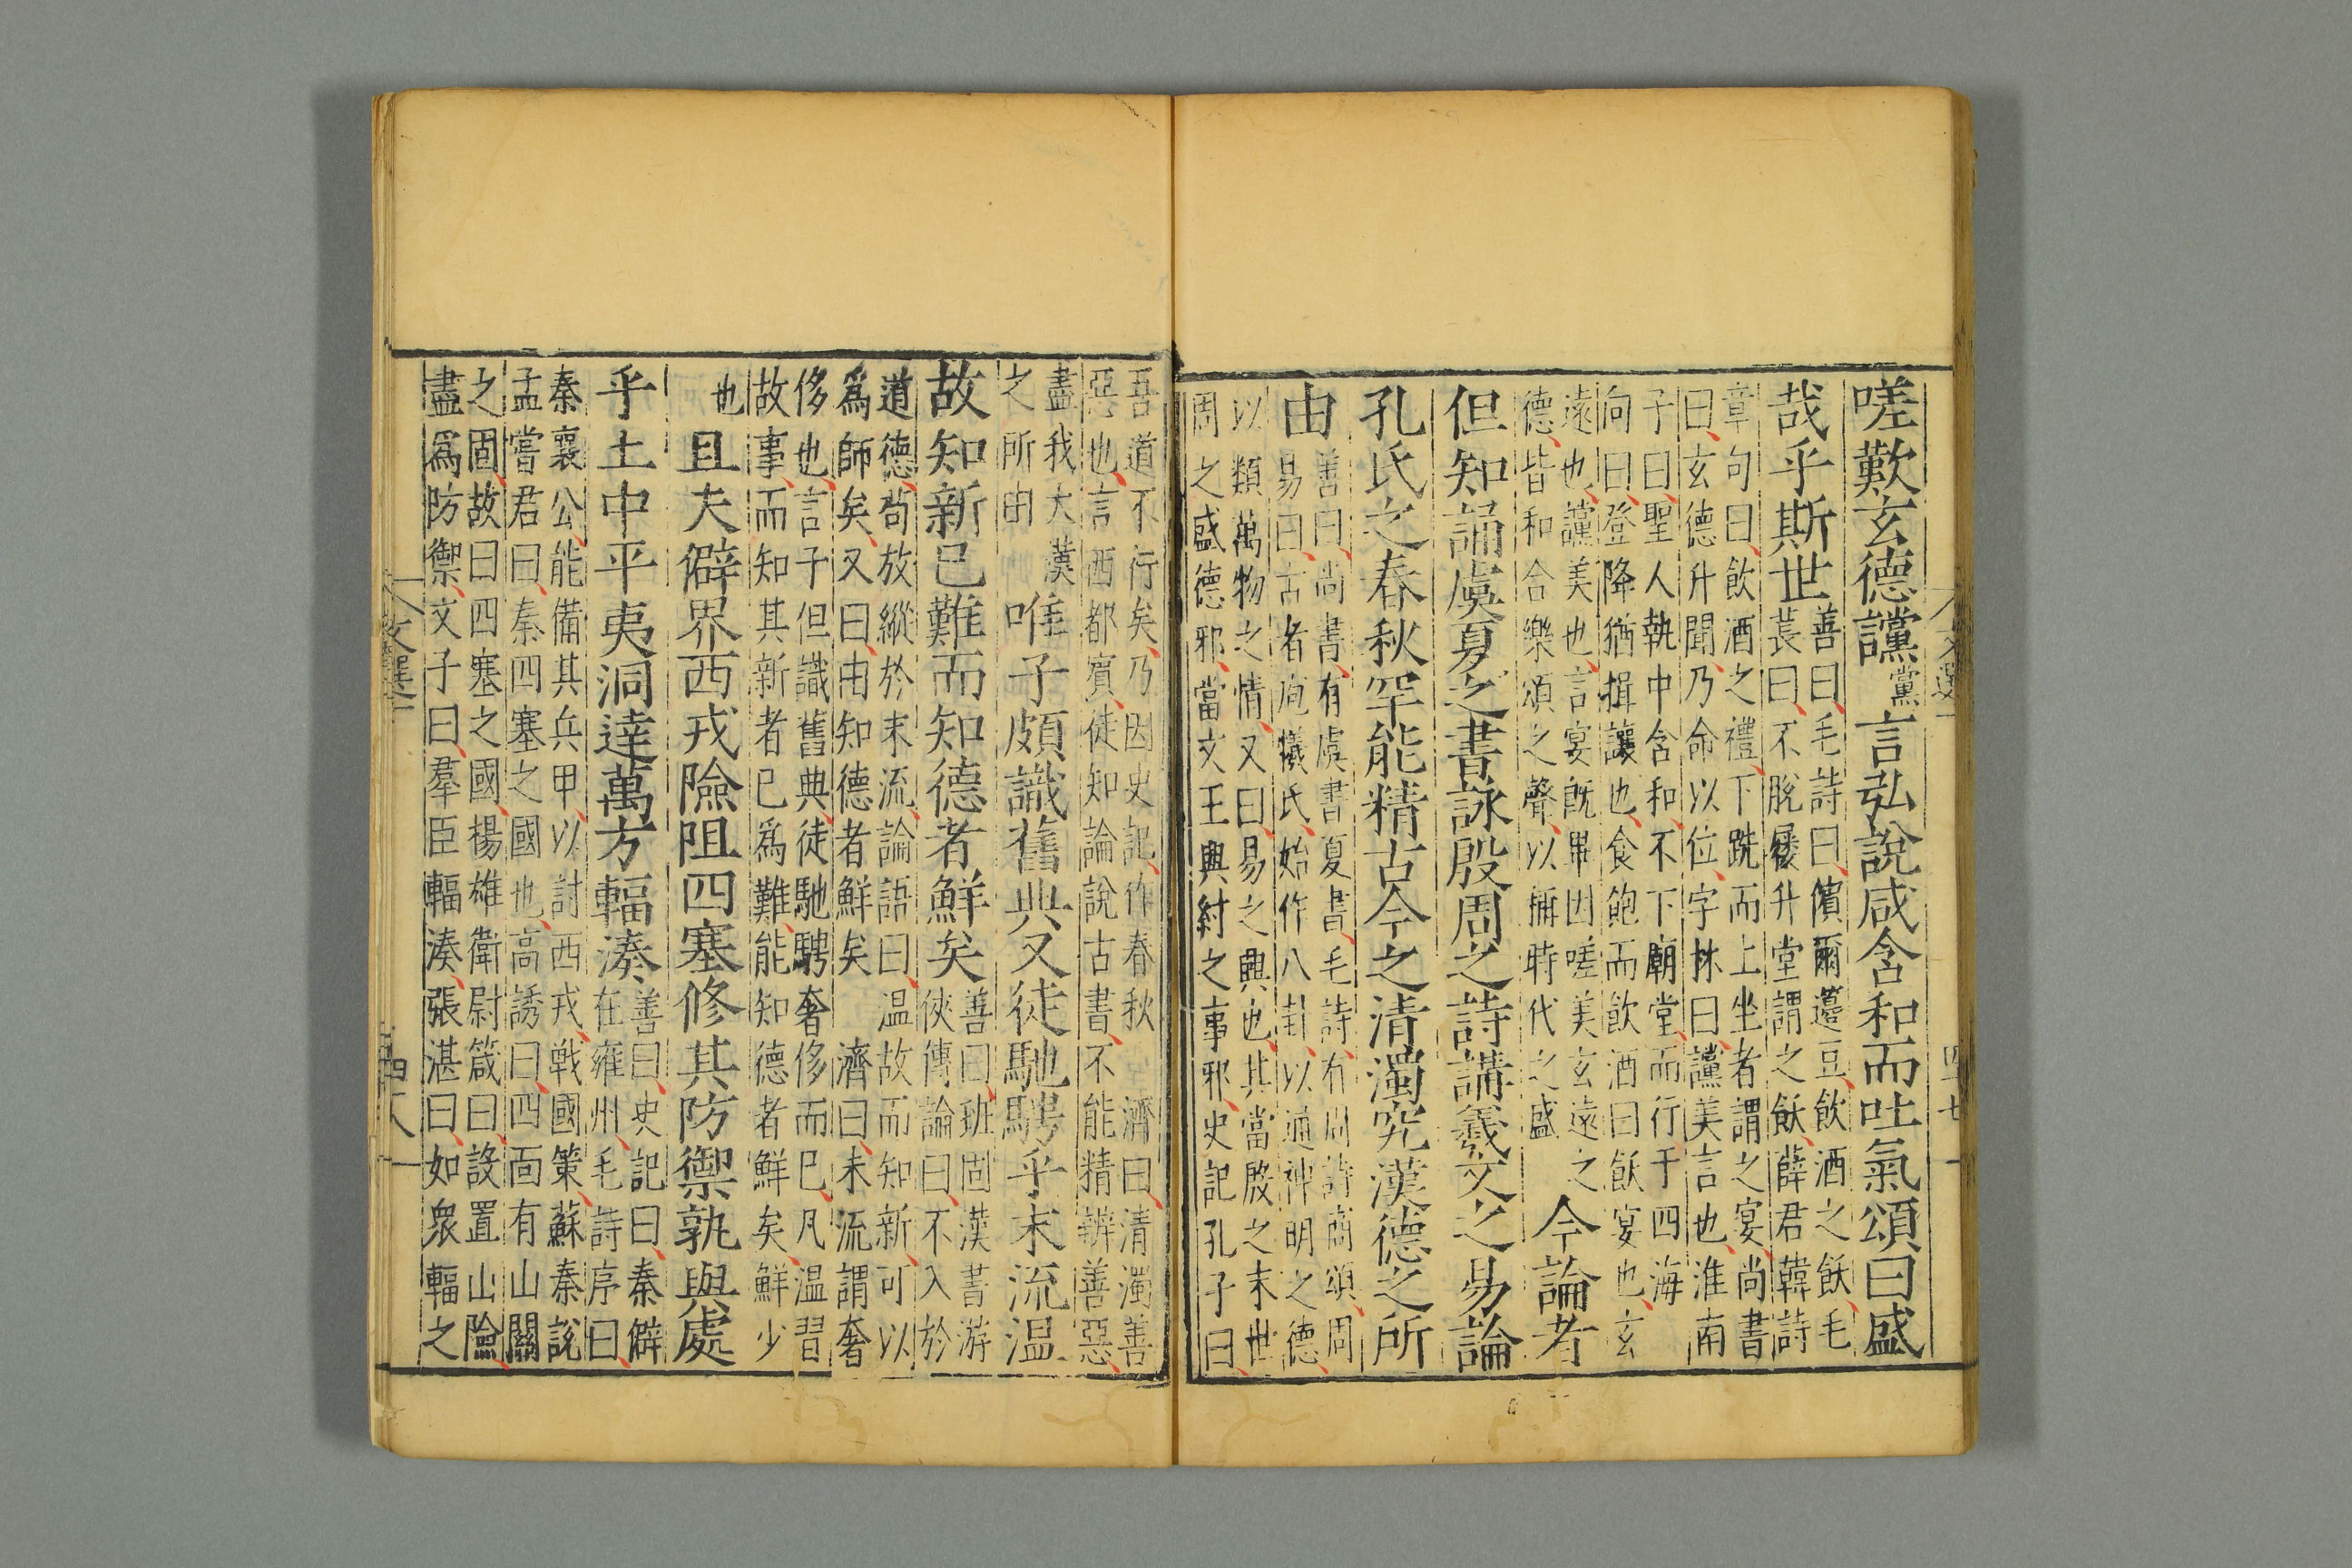 嗟歎玄德讜黨言弘說咸含和而吐氣頌曰盛
哉乎斯世善曰毛詩曰儐爾籩豆飲酒之飫毛
萇曰不脫屨升堂謂之飫薛君韓詩
章句曰飲酒之禮下跣而上坐者謂之宴尚書
曰玄德升聞乃命以位字林曰讜美言也淮南
子曰聖人執中含和不下廟堂而行于四海
向曰登降猶揖讓也食飽而飲酒曰飫宴也玄
遠也讜美也言宴既畢因嗟美玄遠之
德皆和合樂頌之聲以稱時代之盛今論者
但知誦虞夏之書詠殷周之詩講羲文之易論
孔氏之春秋罕能精古今之清濁究漢德之所
由善曰尚書有虞書夏書毛詩有周詩商頌周
易曰古者庖犧氏始作八卦以通神明之德
以類萬物之情又曰易之興也其當殷之末世
周之盛德邪當文王與紂之事邪史記孔子曰
吾道不行矣乃因史記作春秋濟曰清濁善
惡也言西都賓徒知論說古書不能精辨善惡
盡我大漢
之所由唯子頗識舊典又徒馳騁乎末流温
故知新已難而知德者鮮矣善曰班固漢書游
俠傳論曰不入於
道德苟放縱於末流論語曰温故而知新可以
爲師矣又曰由知德者鮮矣濟曰末流謂奢
侈也言子但識舊典徒馳騁奢侈而已凡温習
故事而知其新者已爲難能知德者鮮矣鮮少
也且夫僻界西戎險阻四塞修其防禦孰與處
乎土中平夷洞達萬方輻湊善曰史記曰秦僻
在雍州毛詩序曰
秦襄公能備其兵甲以討西戎戰國策蘇秦說
孟嘗君曰秦四塞之國也高誘曰四面有山關
之固故曰四塞之國楊雄衛尉箴曰設置山險
盡爲防禦文子曰羣臣輻湊張湛曰如衆輻之
文選一
四十七
文選一
四八